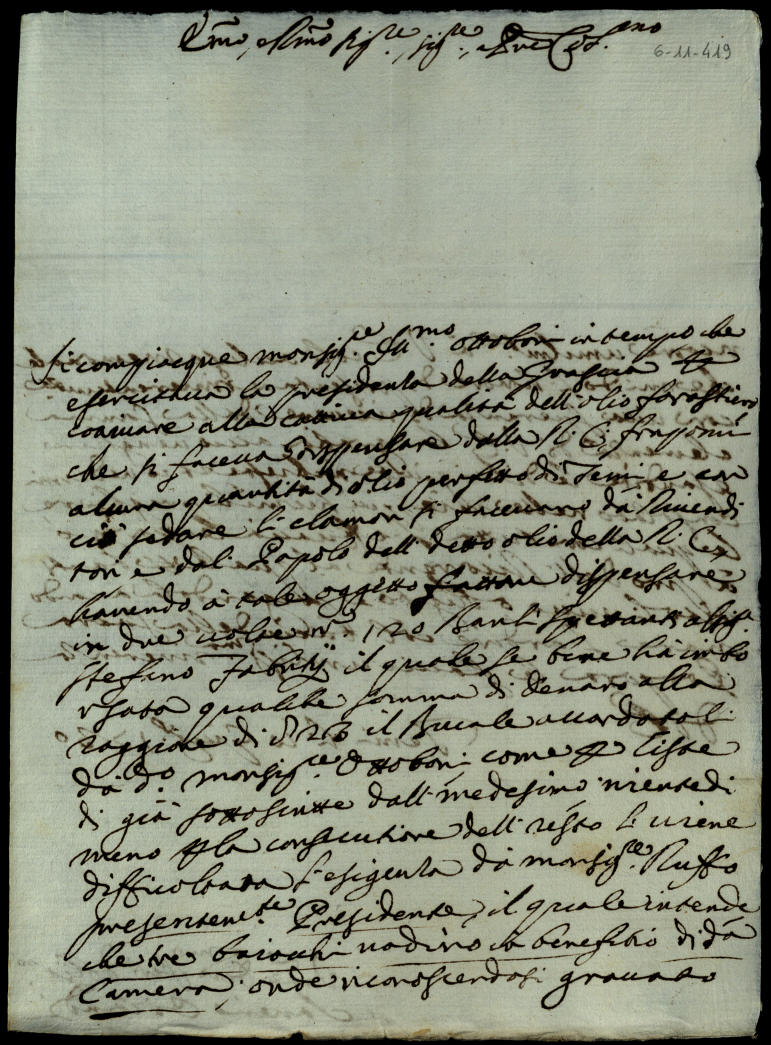 6-11-419
Si compiacque monsig.re Ill.mo Ottoboni in tempo che
esercitava la presidenta della Grascia
alla cattiva qualità dell'olio forastiero
che si faceva dispensare dalla R. C. frapponi
alcuna quantità di olio perfetto di Terni e con
ciò sedare li clamori si facevano dà Rivendi
tori e dal Popolo dell detto olio della R. C.
havendo à tale oggetto fattone dispensare
in due volte n.o 120 Barili spettanti al sig.
Steffano Fabritij il quale se bene hà imbo
rsato qualche somma di denaro alla
raggione di 23 il Bucale accordatoli
dà d.o monsig.re Ottoboni come liste
di già sottoscritte dall medesimo nientedi
meno la consecutione dell resto li viene
difficoltata l'esigenza dà monsig.re Ruffo
presentem.te Presidente, il quale intende
che tre baiocchi vadino in benefitio di d.a
Camera, onde riconoscendosi gravato